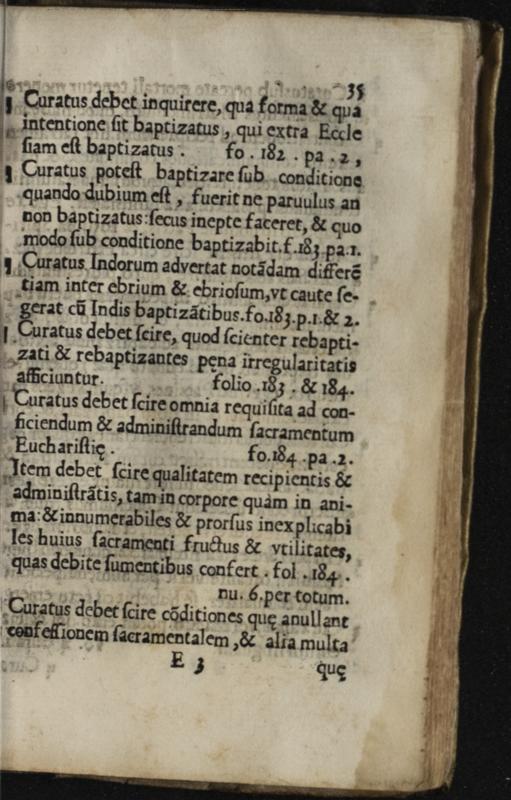 35
¶ Curatus debet inquirere, qua forma & qua
intentione sit baptizatus, qui extra Eccle
siam est baptizatus. fo. 182. pa. 2,
¶ Curatus potest baptizare sub conditione
quando dubium est, fuerit ne paruulus an
non baptizatus: secus inepte faceret, & quo
modo sub conditione baptizabit. f. 183 pa. 1.
¶ Curatus Indorum aduertat notādam differē
tiam inter ebrium & ebriosum, vt caute se-
gerat cū Indis baptizātibus. fo. 183. p. 1. & 2.
¶ Curatus debet scire, quod scienter rebapti-
zati & rebaptizantes pęna irregularitatis
afficiuntur. folio. 183. & 184.
Curatus debet scire omnia requisita ad con-
ficiendum & administrandum sacramentum
Eucharistię. fo. 184. pa. 2.
Item debet scire qualitatem recipientis &
administrātis, tam in corpore quàm in ani-
ma: & innumerabiles & prorsus inexplicabi
les huius sacramenti fructus & vtilitates,
quas debite sumentibus confert. fol. 184.
nu. 6. per totum.
Curatus debet scire cōditiones quę anullant
confessionem sacramentalem, & alia multa
E 3 quę